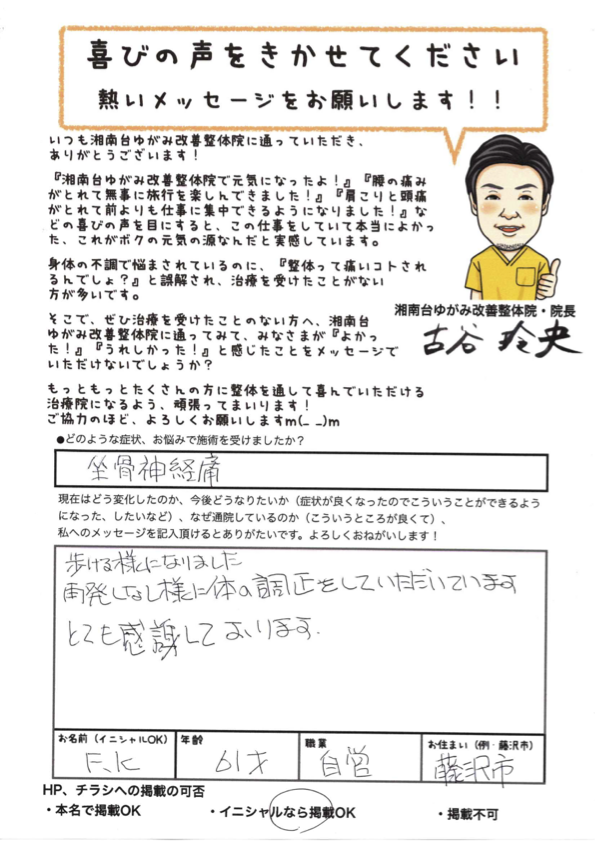 喜びの声をきかせてください
熱いメッセージをお願いします！！
いつも湘南台ゆがみ改善整体院に通っていただき、
ありがとうございます！
『湘南台ゆがみ改善整体院で元気になったよ！』『腰の痛み
がとれて無事に旅行を楽しんできました！』『肩こりと頭痛
がとれて前よりも仕事に集中できるようになりました！』な
どの喜びの声を目にすると、この仕事をしていて本当によかっ
た、これがボクの元気の源なんだと実感しています。
身体の不調で悩まされているのに、『整体って痛いコトされ
るんでしょ？』と誤解され、治療を受けたことがない
方が多いです。
そこで、ぜひ治療を受けたことのない方へ、湘南台
ゆがみ改善整体院に通ってみて、みなさまが『よかっ
た！』『うれしかった！』と感じたことをメッセージで
いただけないでしょうか？
もっともっとたくさんの方に整体を通して喜んでいただける
治療院になるよう、頑張ってまいります！
ご協力のほど、よろしくお願いしますm(_ _)m
湘南台ゆがみ改善整体院・院長
古谷 玲央
●どのような症状、お悩みで施術を受けましたか？
坐骨神経痛
現在はどう変化したのか、今後どうなりたいか（症状が良くなったのでこういうことができるよう
になった、したいなど）、なぜ通院しているのか（こういうところが良くて）、
私へのメッセージを記入頂けるとありがたいです。よろしくおねがいします！
歩ける様になりました
再発しなし様に体の調正をしていただいています
とても感謝しております.
お名前（イニシャルOK） 年齢 職業 お住まい（例・藤沢市）
F.K 61才 自営 藤沢市
HP、チラシへの掲載の可否
・本名で掲載OK ・イニシャルなら掲載OK ・掲載不可